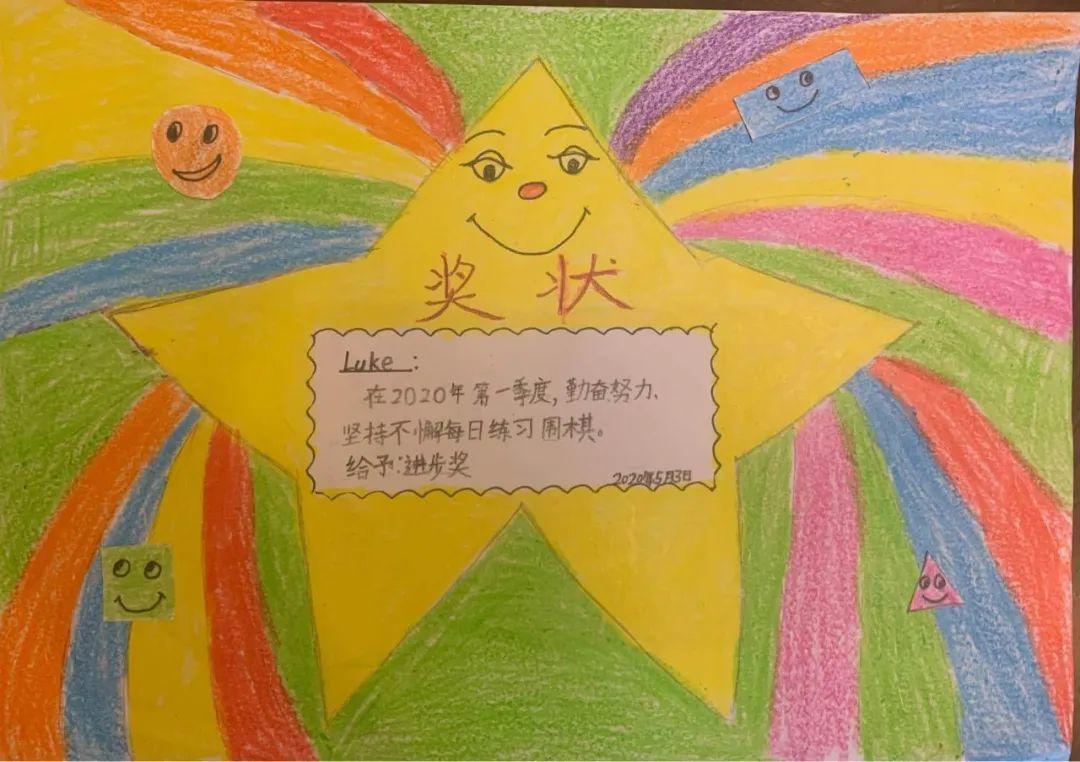 奖 状
Luke :
在2020年第一季度,勤奋努力、
坚持不懈每日练习围棋。
给予:进步奖
2020年5月3日